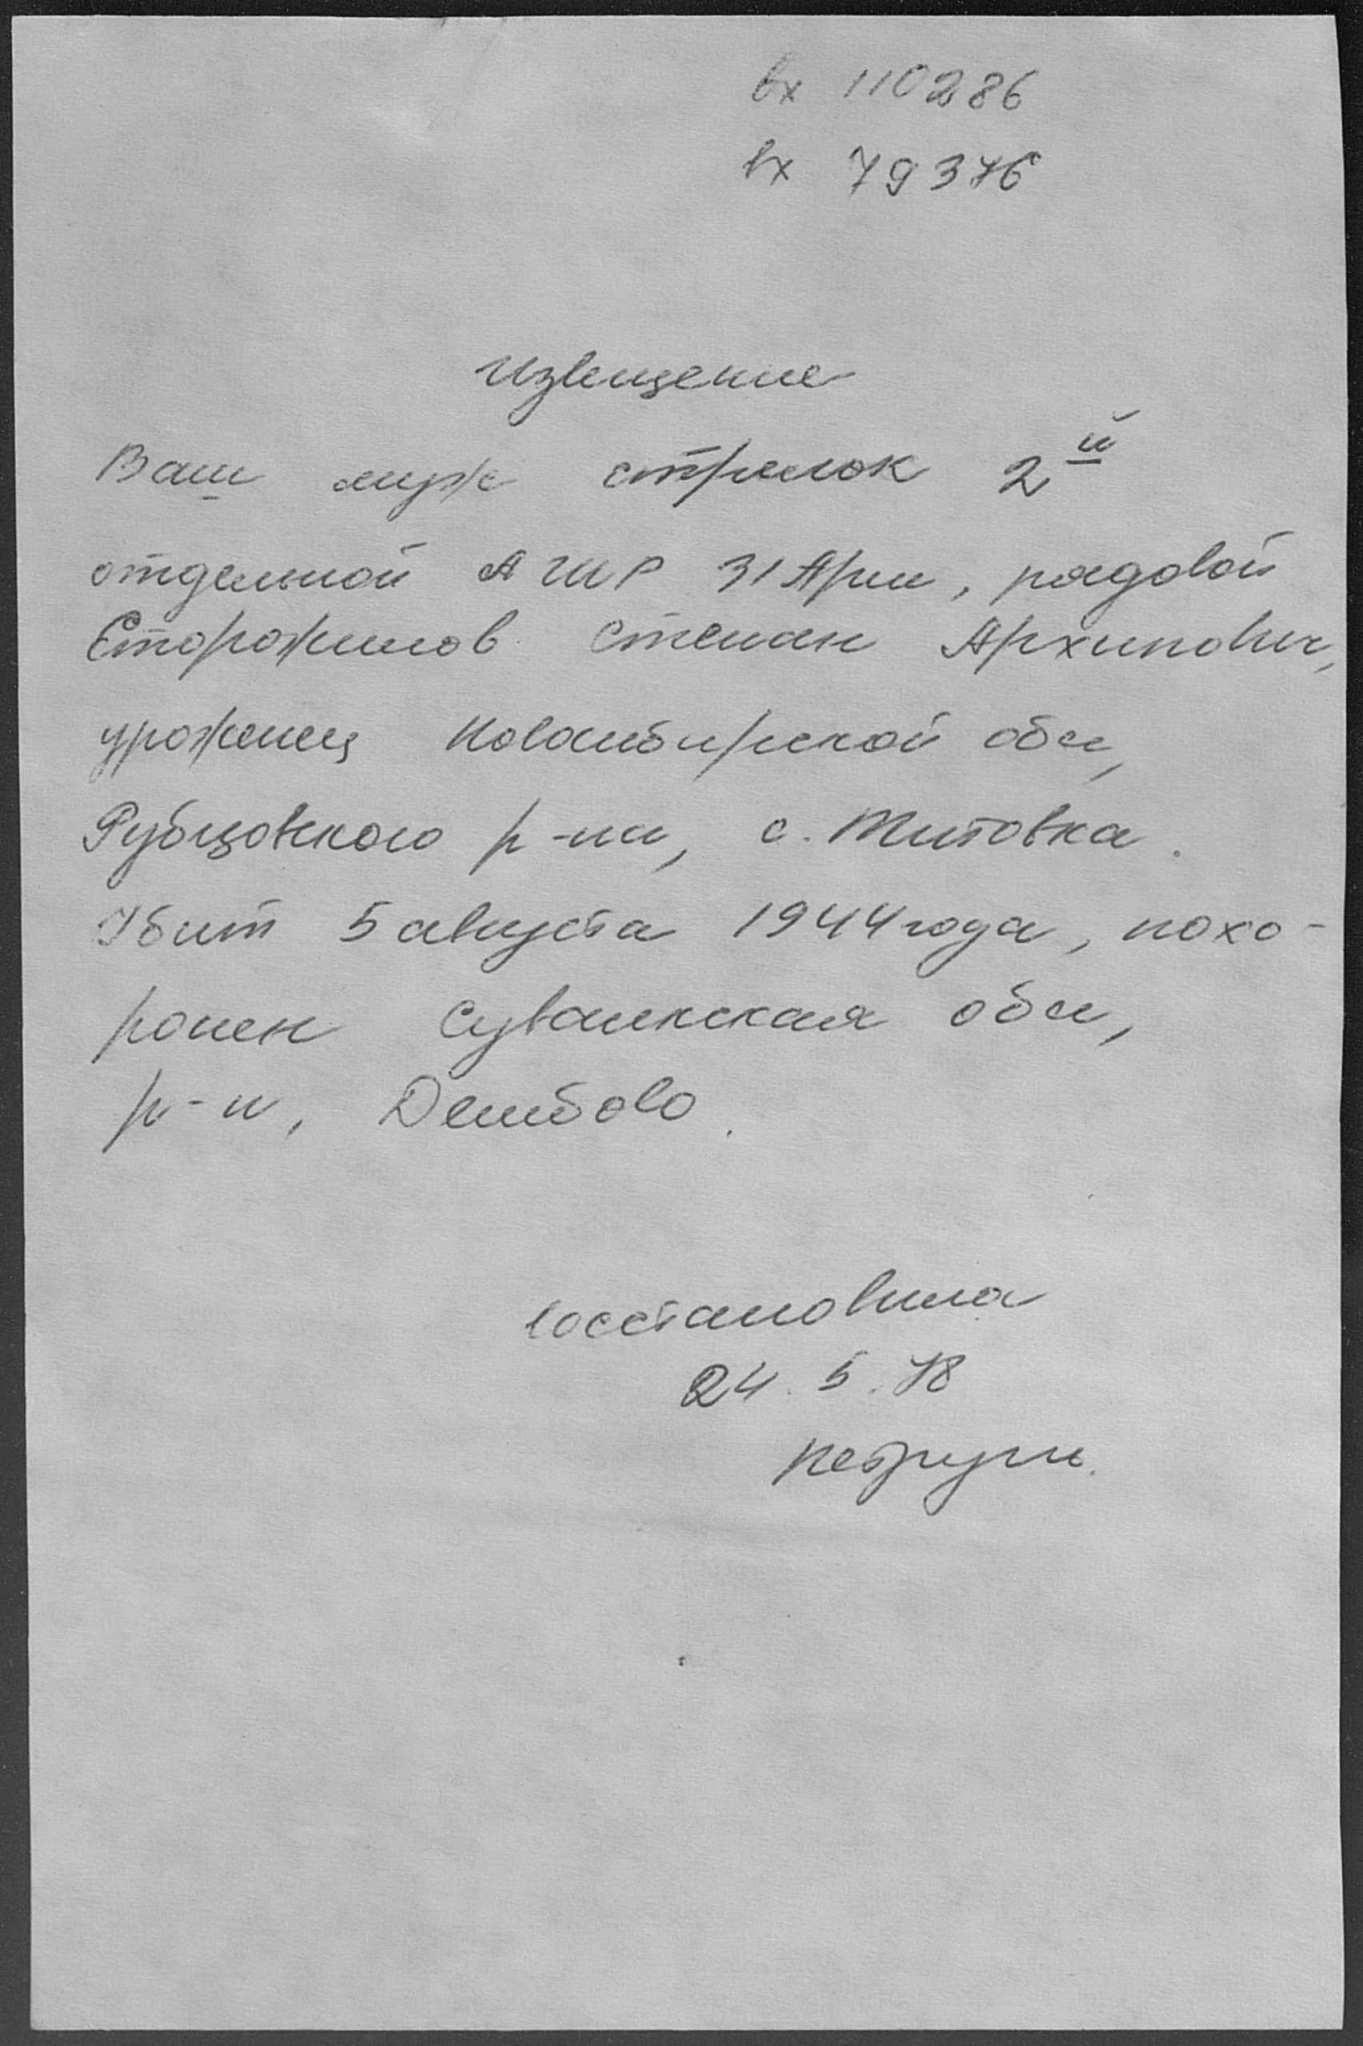 вх 110286
вх 79376
Извещение
Ваш муж стрелок 2й
отдельной АШР 31 Арми, рядовой
Сторожилов Степан Архипович,
уроженец Новосибирской обл,
Рубцовского р-на, с. Титовка.
Убит 5 августа 1944 года, похо-
ронен Сувалкская обл,
р-н, Дембово.
восстановила
24.5.78